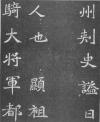 州刾史謚曰
人也顯祖
騎大將軍都